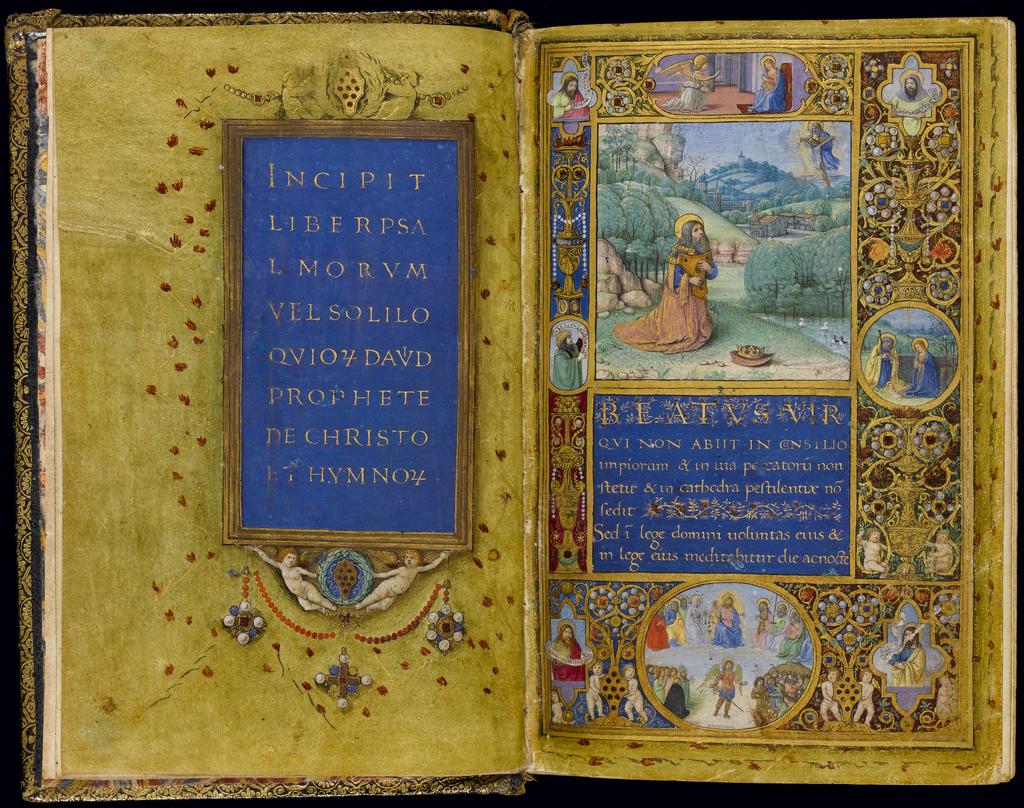 INCIPIT
LIBER PSA
LMORVM
VEL SOLILO
QVIOꝝ DAVID
PROPHETE
DE CHRISTO
ET HYMNOꝝ
BEATVS VIR
QVI NON ABIIT IN CONSILIO
impiorum & in uia peccatorū non
stetit & in cathedra pestilentiæ nō
sedit
Sed ī lege domini uoluntas eius &
in lege eius meditabitur die ac nocte